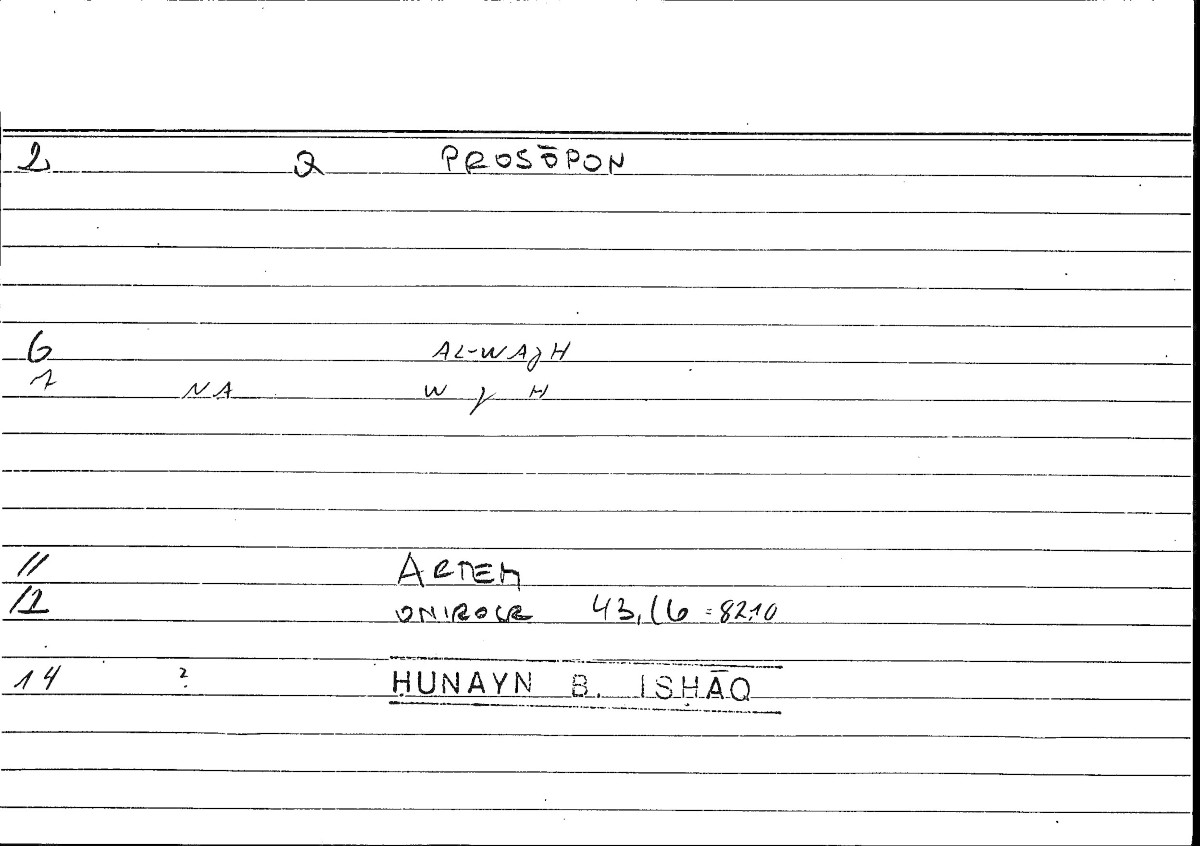 2 Q PROSŌPON
6 AL-WAJH
7 NA W J H
11 ARTEM
12 ONIROCR 43,16 = 82.10
14 ? HUNAYN B. ISḤĀQ